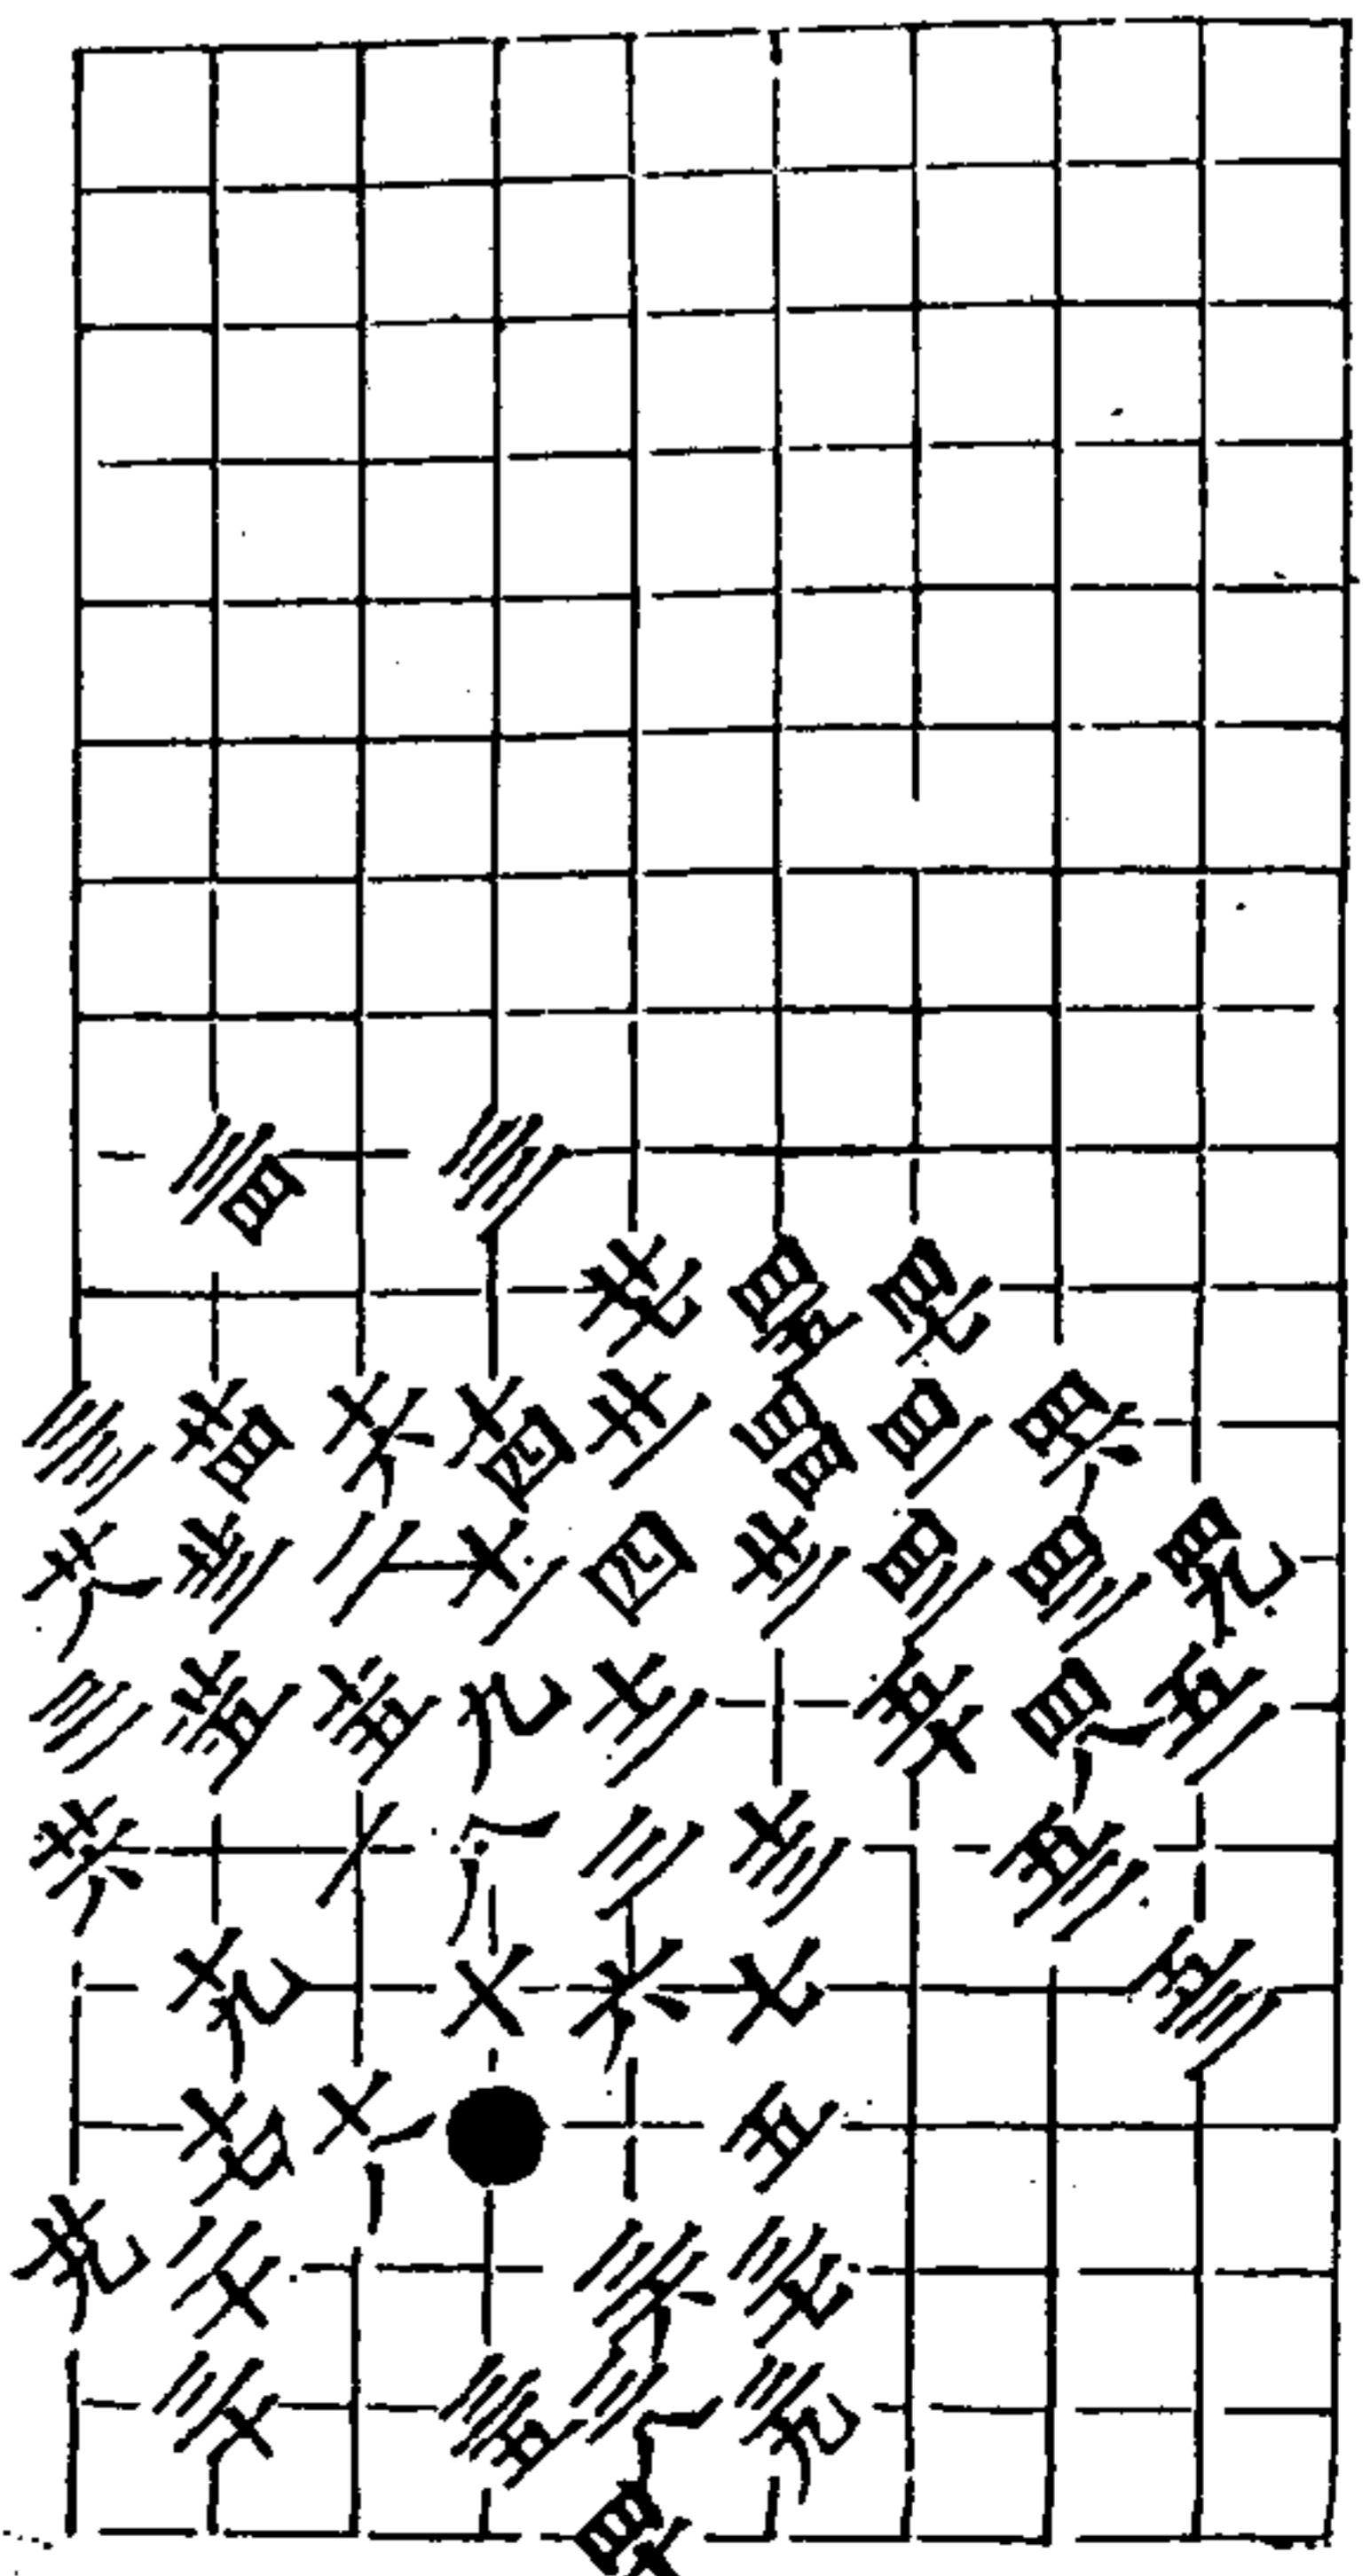 三四 三二
廿七 四五 四七
三三 廿四 十六 十四 廿一 四四 四一 四六
廿八 廿三 二 十一 四 廿二 四二 四三 四九
三一 廿五 十五 九 十二 五十 四八 五一
廿六 一 八 三 十三 五二
十九 十 六 七 五三
十七 十八 五
廿九 二十 三六 三七
三十 三五 三八 三九
四十